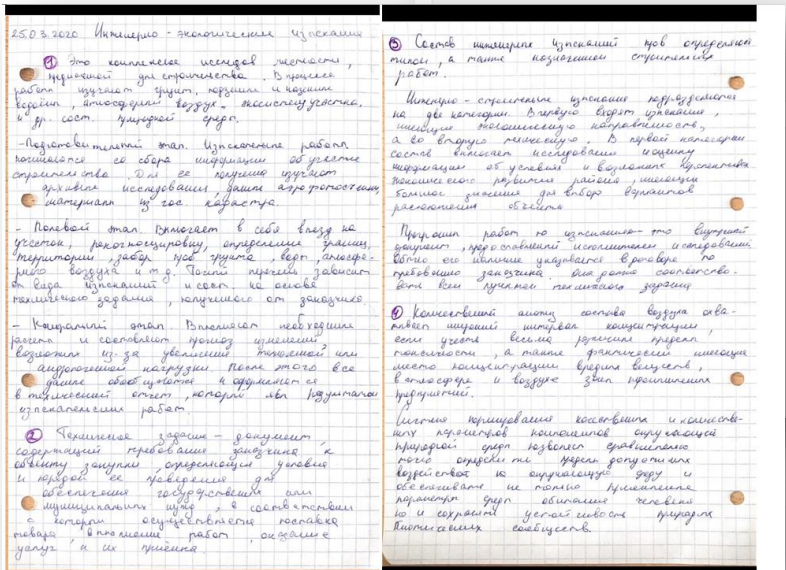 25.03.2020 Инженерно-экологические изыскания
① Это комплексное исследов. местности,
предназнач. для строительства. В процессе
работ изучают грунт, подземн. и наземн.
водоёмы, атмосферный воздух, экосистему участка,
и др. сост. природной среды.
-Подготовительный этап. Изыскательные работы
начинаются со сбора информации об участке
строительства. Для её получения изучают
архивные исследования, данные аэрофотосъёмки,
материалы из гос. кадастра.
- Полевой этап. Включает в себя выезд на
участок, рекогносцировку, определение границ,
территории, забор проб грунта, воды, атмосфе-
рного воздуха и т.д. Точный перечень зависит
от вида изысканий и сост. на основе
технического задания, полученного от заказчика.
- Камеральный этап. Выполняют необходимые
расчёты и составляют прогноз изменений,
возможных из-за увеличения техногенной или
антропогенной нагрузки. После этого все
данные обобщаются и оформляются
в технический отчет, который явл. результатом
изыскательных работ.
② Техническое задание - документ,
содержащий требования заказчика к
объекту закупки, определяющие условия
и порядок её проведения для
обеспечения государственных или
муниципальных нужд, в соответствии
с которым осуществляется поставка
товара, выполнение работ, оказание
услуг и их приёмка.
③ Состав инженерных изысканий
типом, а также назначением строительных
работ.
Инженерно-строительные изыскания подразделяются
на две категории. В первую входят изыскания,
имеющие экономическую направленность,
а во вторую техническую. В первой категории
состав включает исследования и оценку
информации об условиях и возможных перспективах
экономического развития района, имеющих
большое значение для выбора вариантов
расположения объекта
Программа работ по изысканиям - это внутренний
документ, предоставляемый исполнителем исследований
Обычно его наличие указывается в договоре по
требованию заказчика. Она должна соответство-
вать всем пунктам технического задания
④ Количественный анализ состава воздуха охва-
тывает широкий интервал концентраций,
если учесть весьма различные пределы
токсичности, а также фактически имеющие
место концентрации вредных веществ,
в атмосфере и воздухе зон промышленных
предприятий.
Система нормирования качественных и количествен-
ных параметров компонентов окружающей
природной среды позволяет сравнительно
точно определить пределы допустимых
воздействий на окружающую среду и
обеспечивать не только приемлемые
параметры среды обитания человека
но и сохранять устойчивость природных
биотических сообществ.